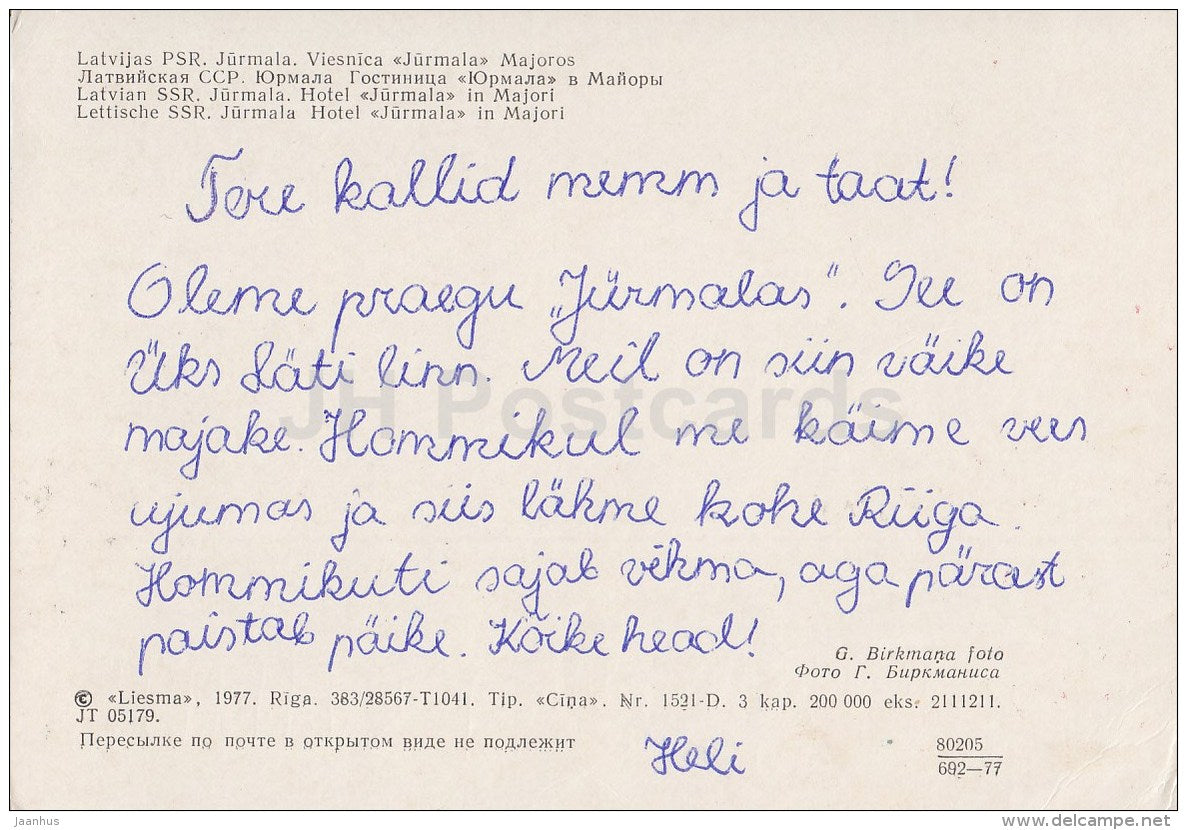 Latvijas PSR. Jūrmala. Viesnīca «Jūrmala» Majoros
Латвийская ССР. Юрмала Гостиница «Юрмала» в Майоры
Latvian SSR. Jūrmala. Hotel «Jūrmala» in Majori
Lettische SSR. Jūrmala Hotel «Jūrmala» in Majori
Tere kallid memm ja taat!
Oleme praegu „Jürmalas". See on
üks Läti linn. Meil on siin väike
majake. Hommikul me käime vees
ujumas ja siis lähme kohe Riiga.
Hommikuti sajab vihma, aga pärast
paistab päike. Kõike head!
G. Birkmaņa foto
Фото Г. Биркманиса
© «Liesma», 1977. Rīga. 383/28567-T1041. Tip. «Cīņa». Nr. 1521-D. 3 kap. 200 000 eks. 2111211.
JT 05179.
Пересылке по почте в открытом виде не подлежит
Heli
80205
692—77
JH Postcards
Jaanhus
delcampe.net